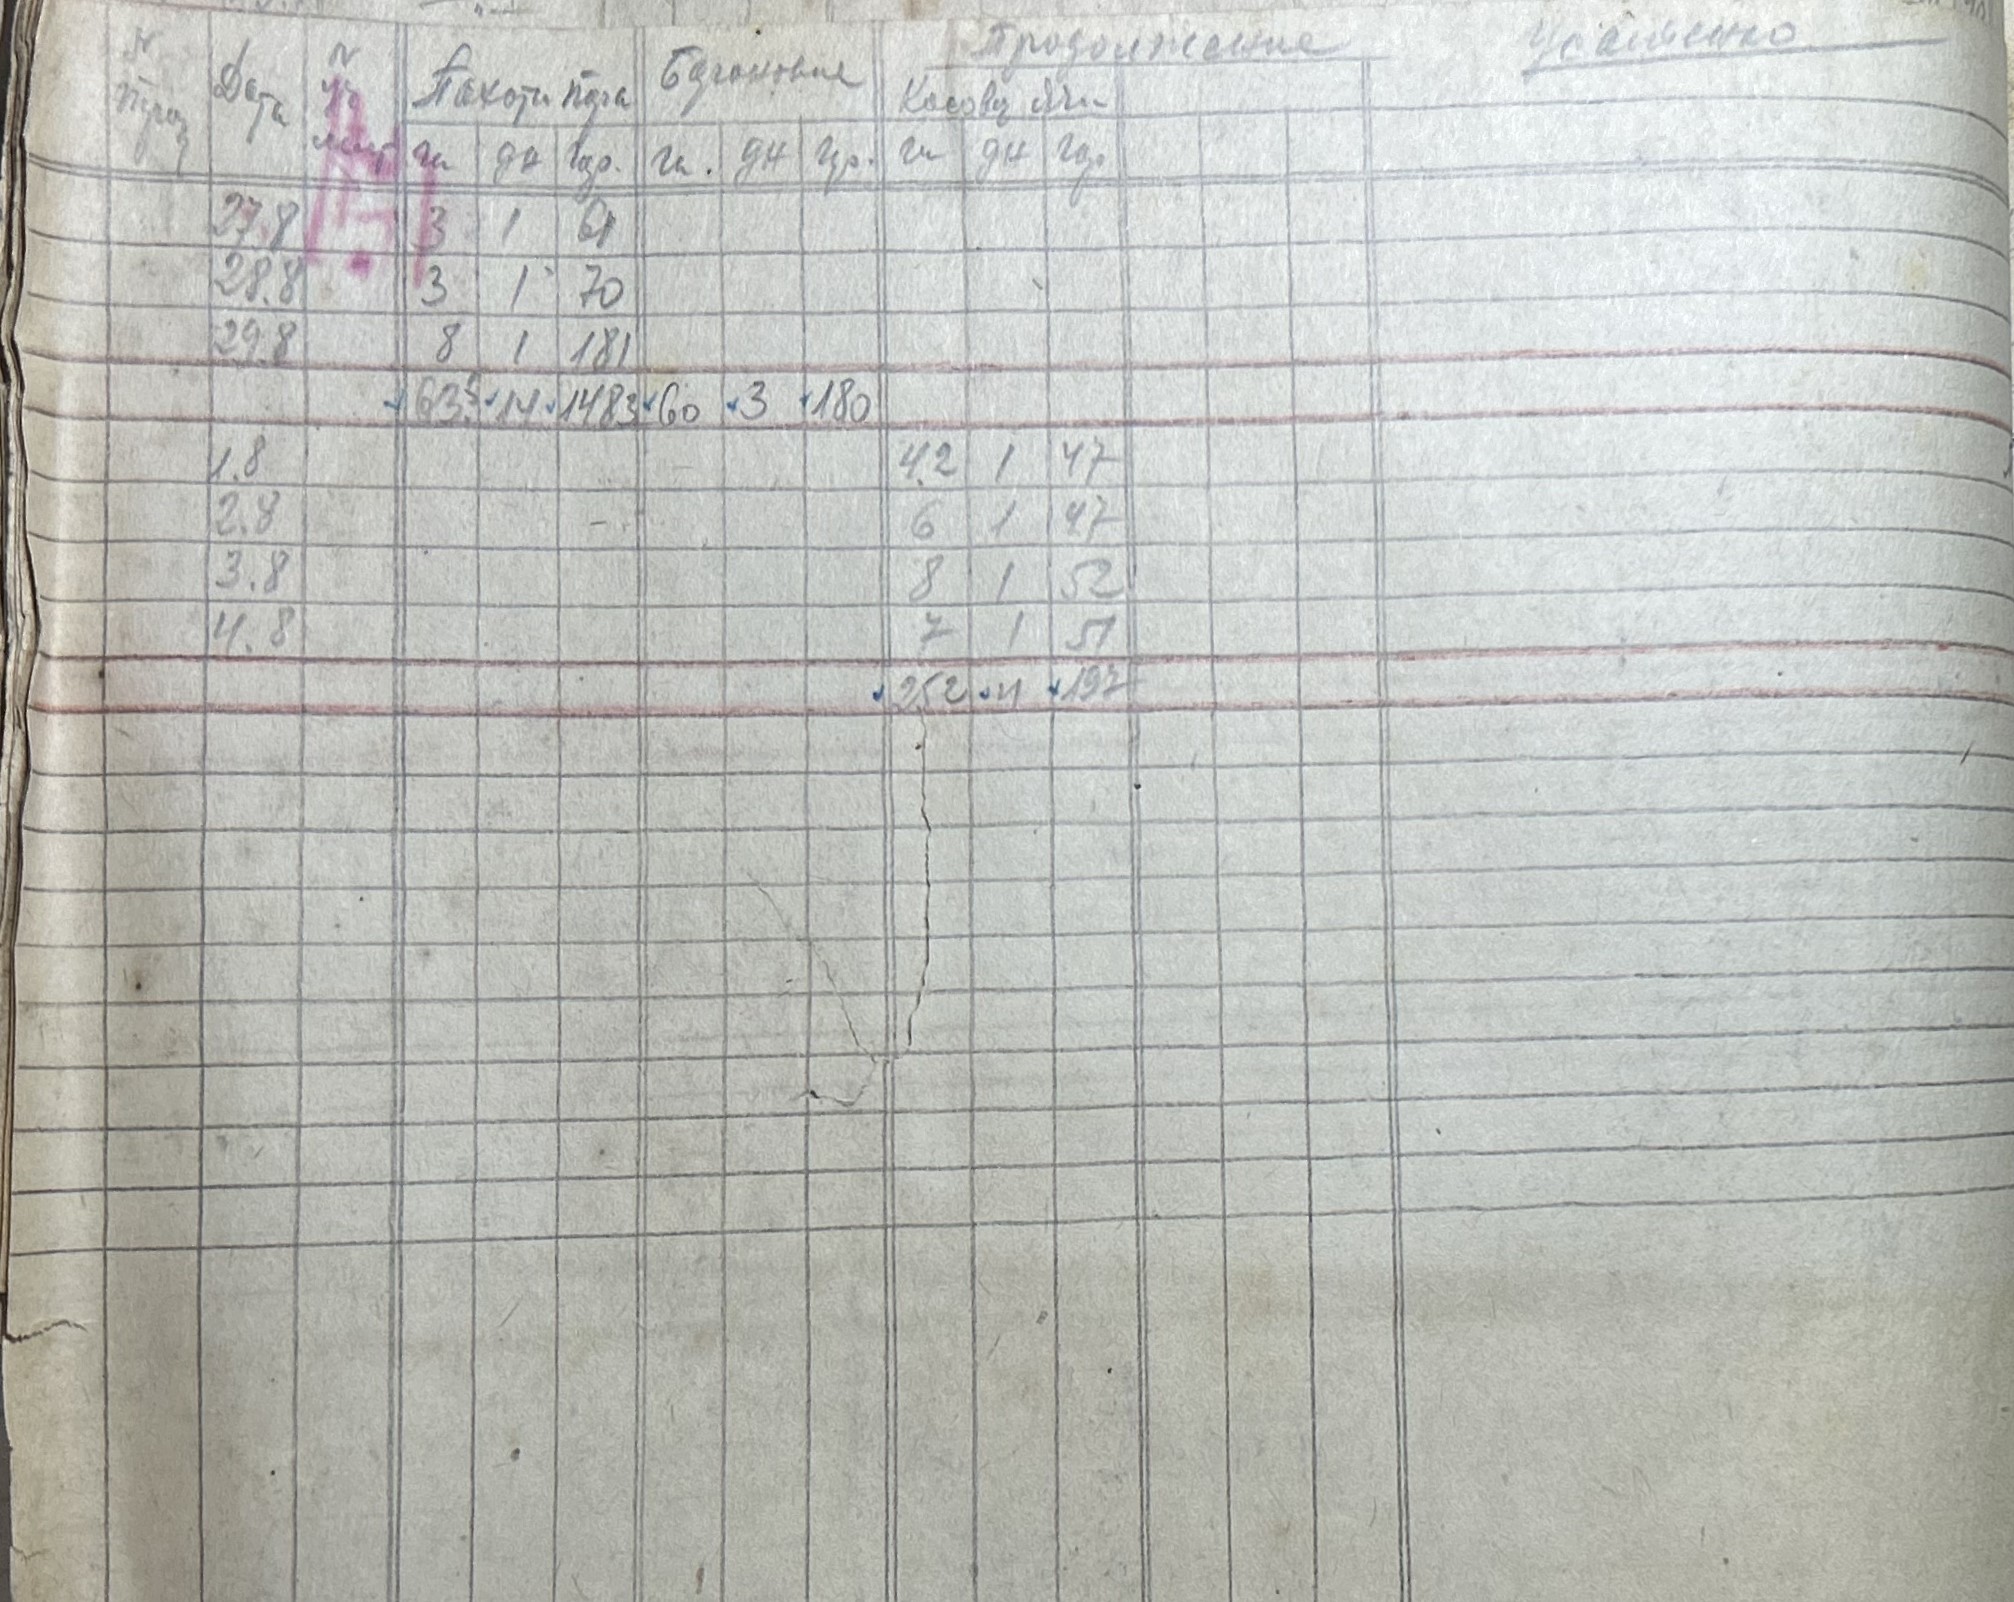 Продолжение Усатенко
N Дата N Пахоти пара Боронование Косовиц
га дн гар. га. дн гар. га дн гар
27.8 3 1 61
28.8 3 1 70
29.8 8 1 181
63.5 14 1483 60 3 180
1.8 4.2 1 47
2.8 6 1 47
3.8 8 1 52
4.8 7 1 51
252 4 197